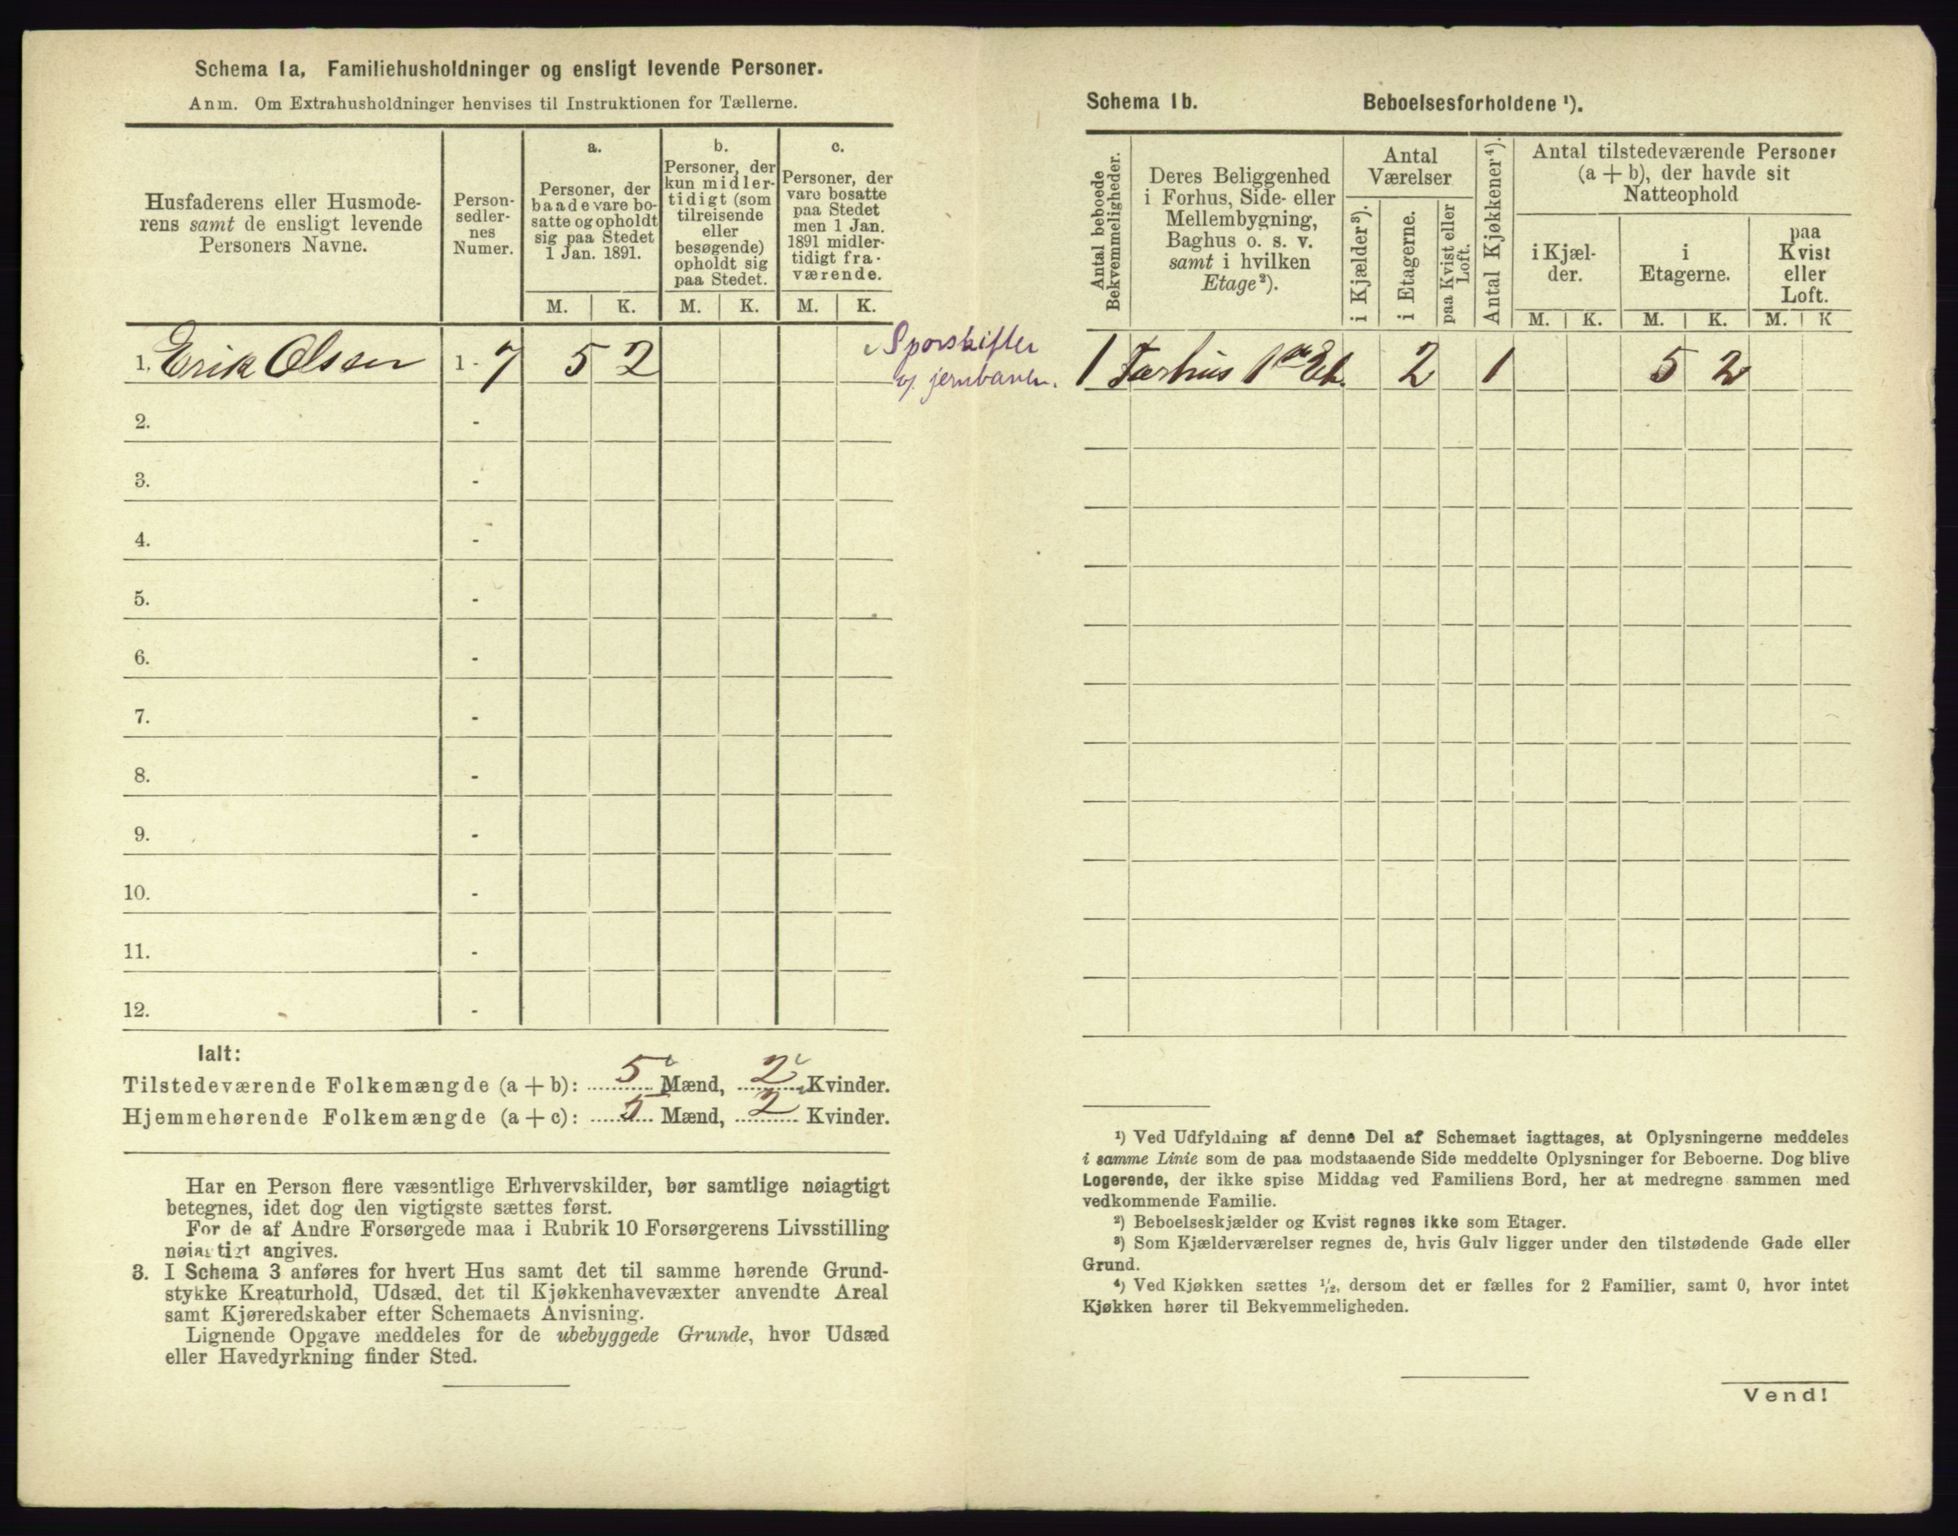 Schema 1a, Familiehusholdninger og ensligt levende Personer.
Anm. Om Extrahusholdninger henvises til Instruktionen for Tællerne.
Husfaderens eller Husmode-
rens samt de ensligt levende
Personers Navne.
Person-
sedler-
nes
Numer.
a.
Personer, der
baade vare bo-
satte og opholdt
sig paa Stedet
1 Jan. 1891.
b.
Personer, der
kun midler-
tidigt (som
tilreisende
eller
besøgende)
opholdt sig
paa Stedet.
c.
Personer, der
vare bosatte
paa Stedet
men 1 Jan.
1891 midler-
tidigt fra-
værende.
M. K. M. K. M. K.
1. Erik Olsen 1 - 7 5 2
Sporskifter
v/ jernbanen.
2. -
3. -
4. -
5. -
6. -
7. -
8. -
9. -
10. -
11. -
12. -
Ialt:
Tilstedeværende Folkemængde (a + b): 5 Mænd, 2 Kvinder.
Hjemmehørende Folkemængde (a + c): 5 Mænd, 2 Kvinder.
Har en Person flere væsentlige Erhvervskilder, bør samtlige nøiagtigt
betegnes, idet dog den vigtigste sættes først.
For de af Andre Forsørgede maa i Rubrik 10 Forsørgerens Livsstilling
nøiagtigt angives.
3. I Schema 3 anføres for hvert Hus samt det til samme hørende Grund-
stykke Kreaturhold, Udsæd, det til Kjøkkenhavevæxter anvendte Areal
samt Kjøreredskaber efter Schemaets Anvisning.
Lignende Opgave meddeles for de ubebyggede Grunde, hvor Udsæd
eller Havedyrkning finder Sted.
Schema 1b. Beboelsesforholdene ¹).
Antal beboede
Bekvemmeligheder.
Deres Beliggenhed
i Forhus, Side- eller
Mellembygning,
Baghus o. s. v.
samt i hvilken
Etage²).
Antal
Værelser
i Kjælder³).
i Etagerne.
paa Kvist eller
Loft.
Antal Kjøkkener⁴).
Antal tilstedeværende Personer
(a + b), der havde sit
Natteophold
i Kjæl-
der.
i
Etagerne.
paa
Kvist
eller
Loft.
M. K. M. K. M. K
1 Forhus 1ste Et. 2 1 5 2
¹) Ved Udfyldning af denne Del af Schemaet iagttages, at Oplysningerne meddeles
i samme Linie som de paa modstaaende Side meddelte Oplysninger for Beboerne. Dog blive
Logerende, der ikke spise Middag ved Familiens Bord, her at medregne sammen med
vedkommende Familie.
²) Beboelseskjælder og Kvist regnes ikke som Etager.
³) Som Kjælderværelser regnes de, hvis Gulv ligger under den tilstødende Gade eller
Grund.
⁴) Ved Kjøkken sættes ½, dersom det er fælles for 2 Familier, samt 0, hvor intet
Kjøkken hører til Bekvemmeligheden.
Vend!